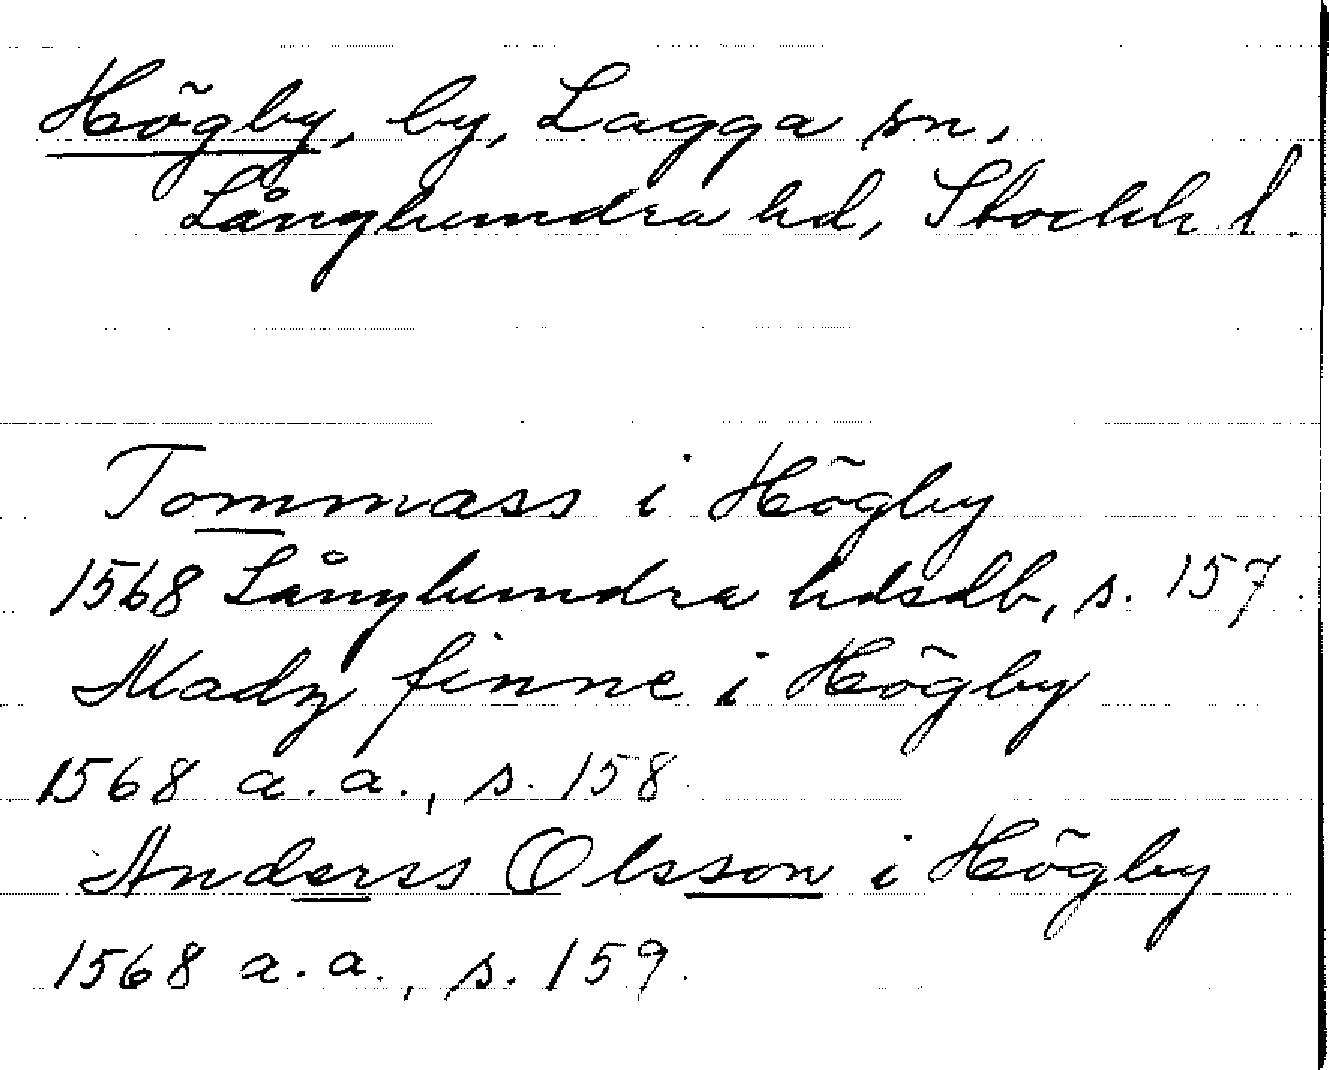 Högby, by, Lagga sn,
Långhundra hd, Stockh. l.
Tommass i Högby
1568 Långhundra hdsdb, s. 157
Madz finne i Högby
1568 a.a., s. 158.
Anderss Olsson i Högby
1568 a.a., s. 159.